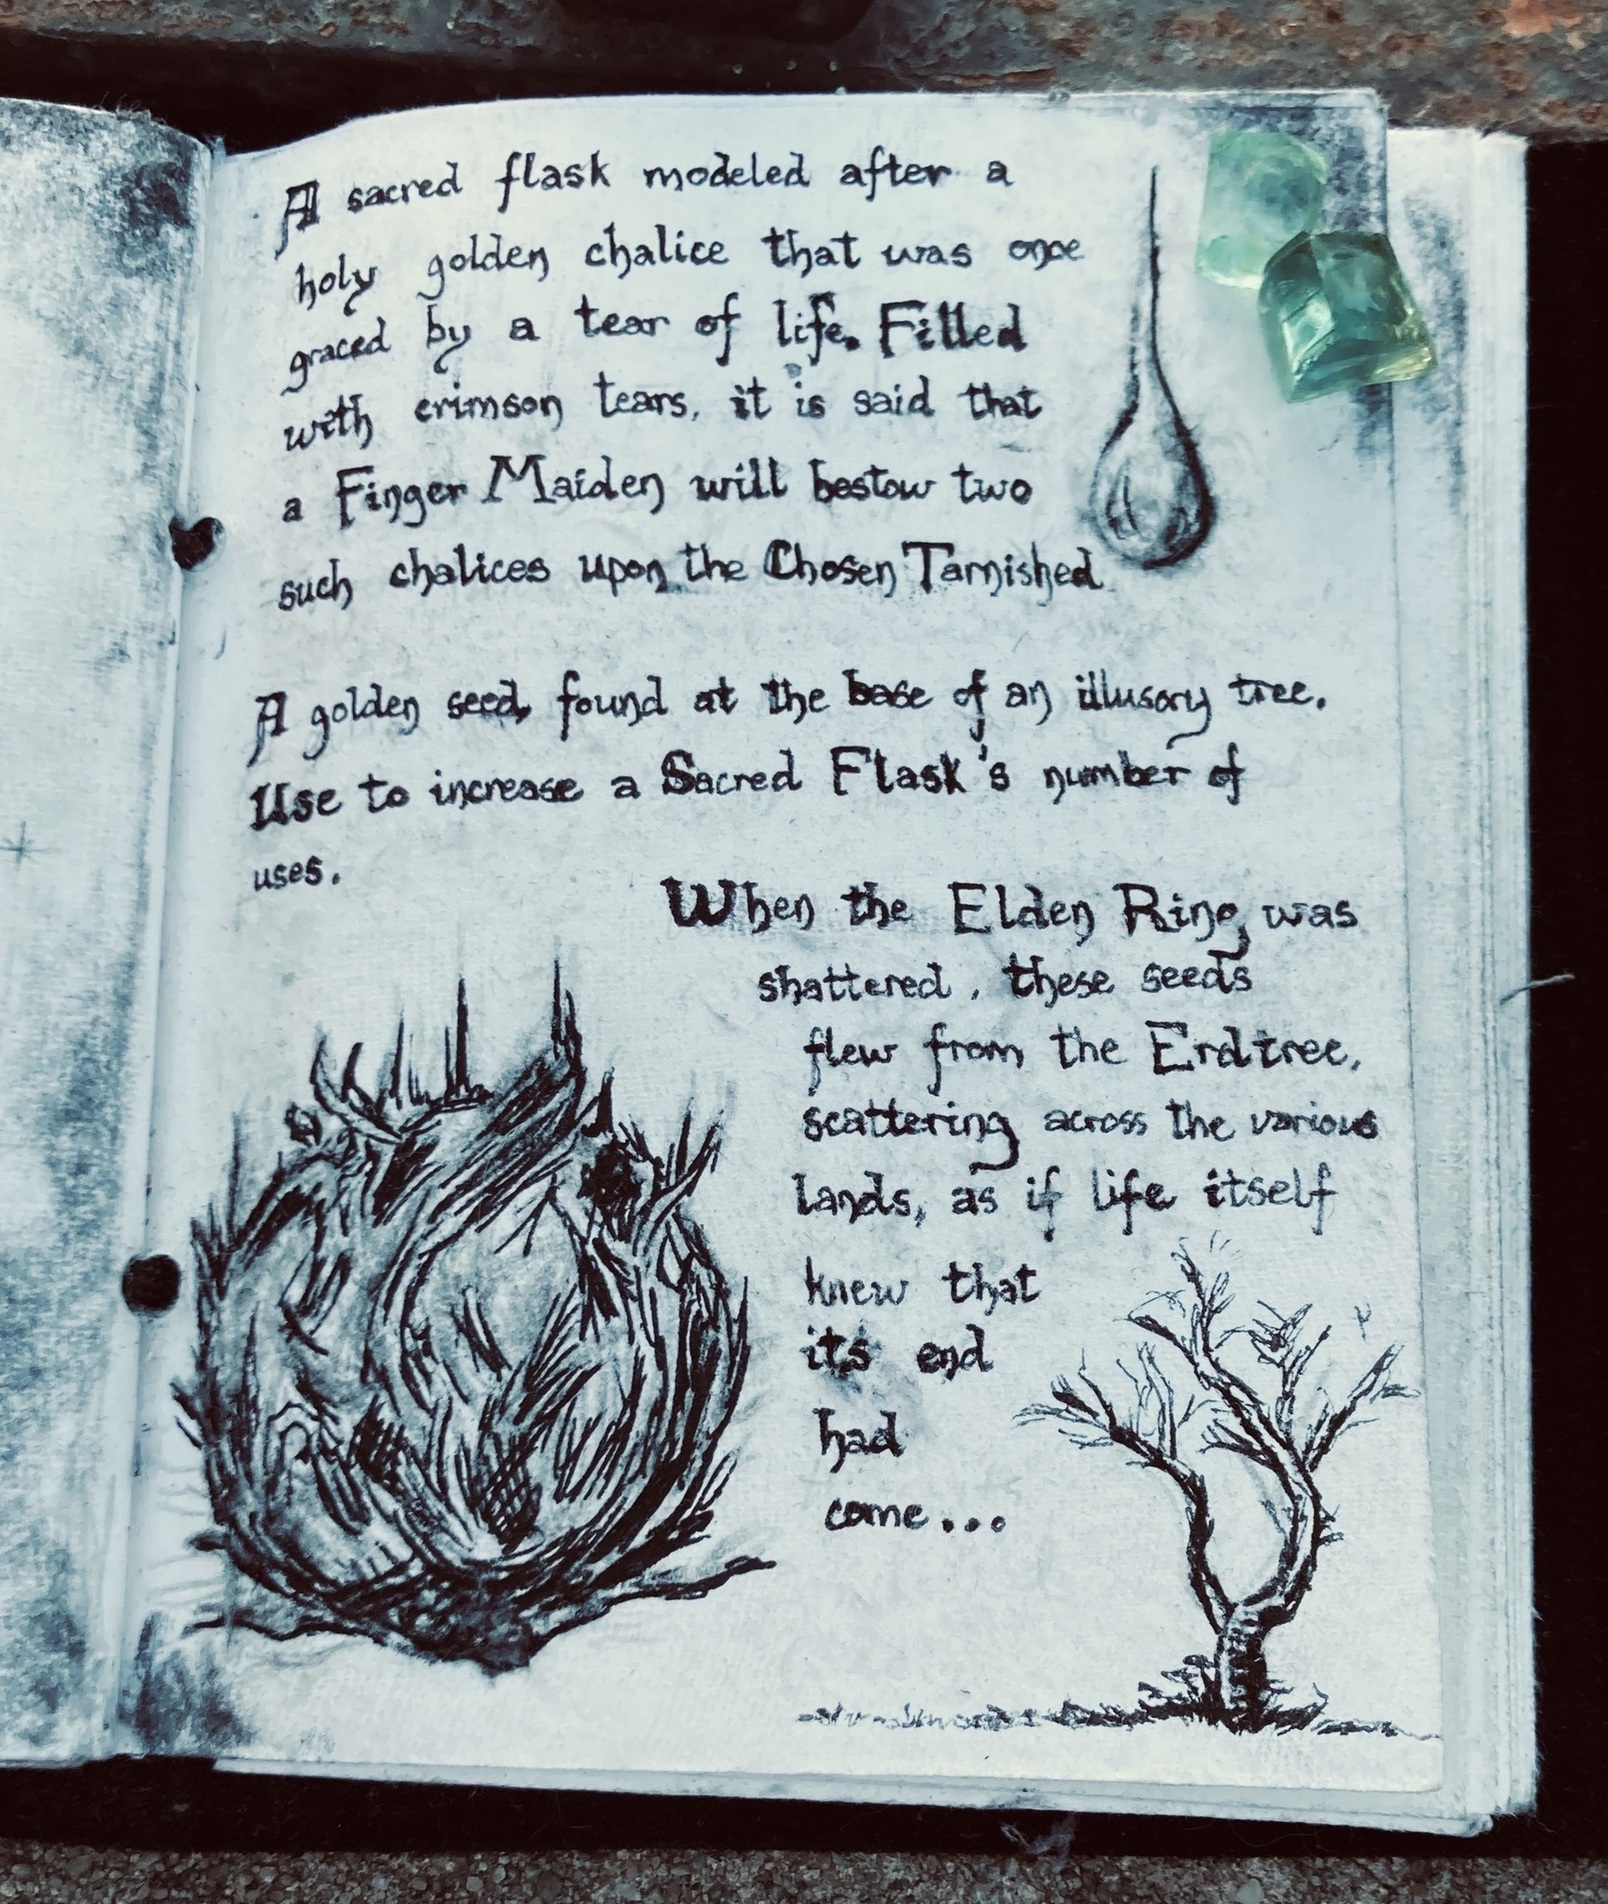 A sacred flask modeled after a
holy golden chalice that was once
graced by a tear of life. Filled
with crimson tears, it is said that
a Finger Maiden will bestow two
such chalices upon the Chosen Tarnished
A golden seed, found at the base of an illusory tree.
Use to increase a Sacred Flask's number of
uses.
When the Elden Ring was
shattered, these seeds
flew from the Erdtree,
scattering across the various
lands, as if life itself
knew that
its end
had
come...